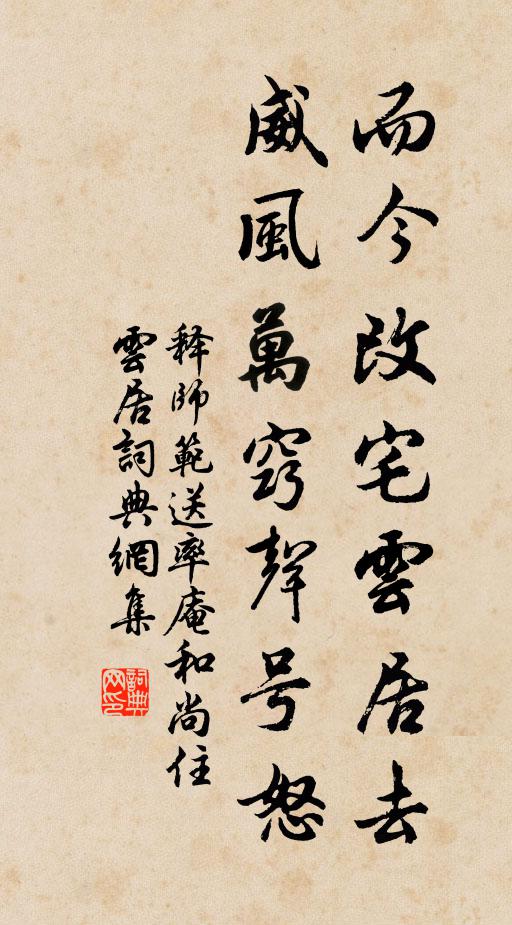 而今改宅雲居去
威風萬竅聲号怒
释師範送率庵和尚住
雲居詞典網集
詞典
网印